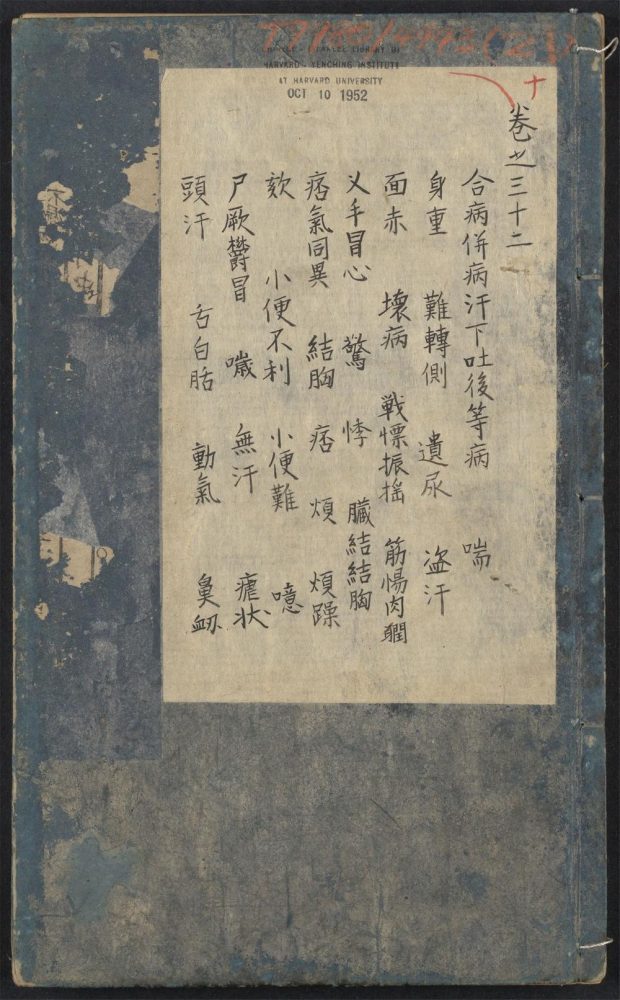 CHINESE - JAPANESE LIBRARY OF
HARVARD - YENCHING INSTITUTE
AT HARVARD UNIVERSITY
OCT 10 1952
十
卷之三十二
合病併病汗下吐後等病 喘
身重 難轉側 遺尿 盜汗
面赤 壞病 戰慄振搖 筋惕肉瞤
乂手冒心 驚 悸 臓結結胸
痞氣同異 結胸 痞 煩 煩躁
欬 小便不利 小便難 噫
尸厥欝冒 噦 無汗 瘧状
頭汗 舌白胎 動氣 鼻衂